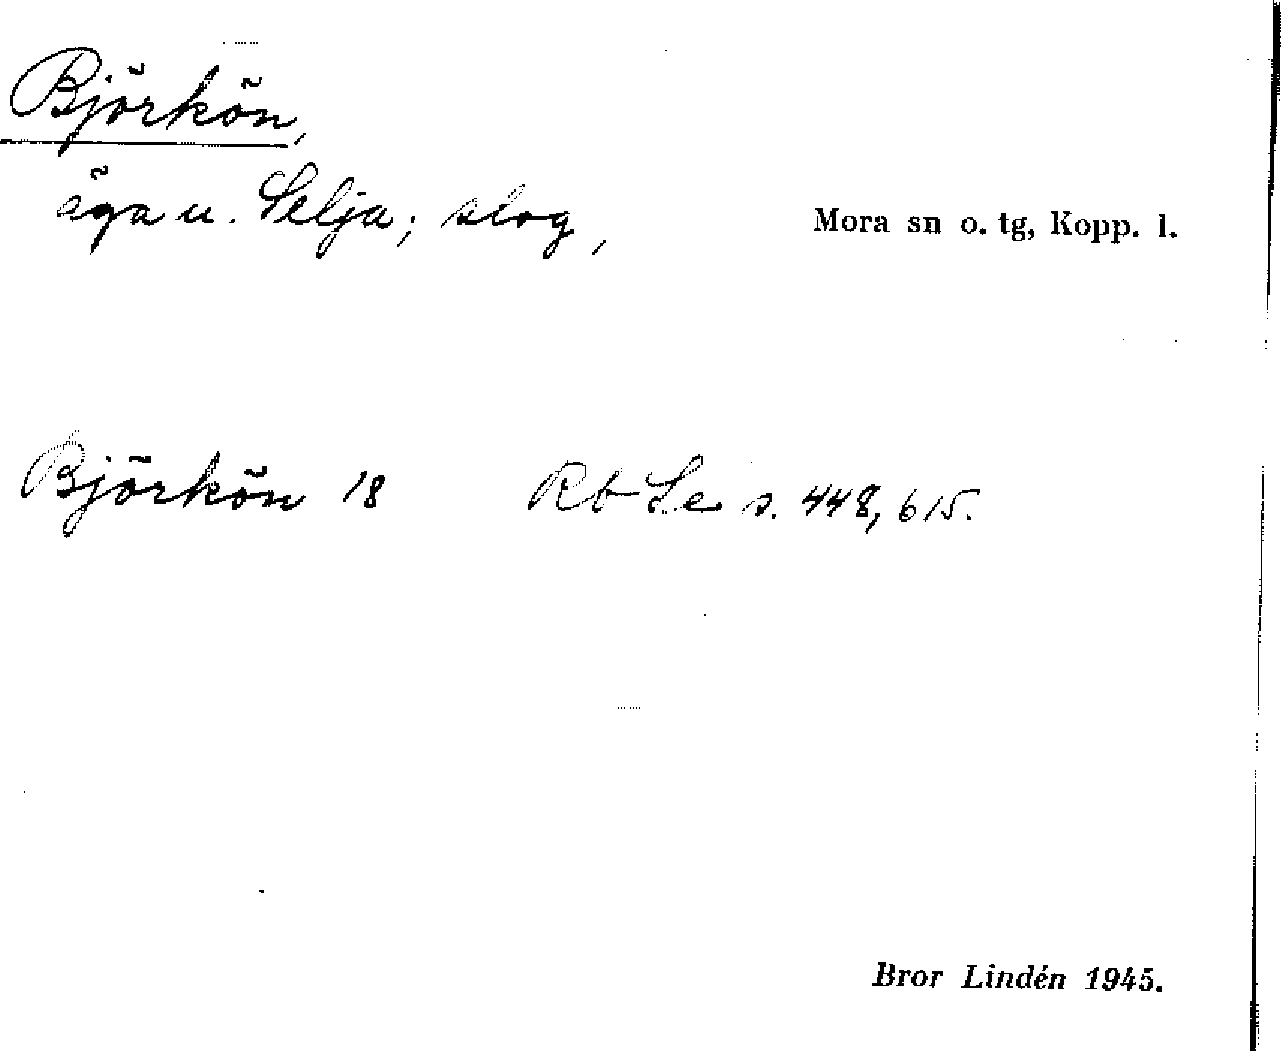 Björkön,
äga u. Selja; slog,
Mora sn o. tg, Kopp. l.
Björkön 18 Rb Se s. 448, 615.
Bror Lindén 1945.